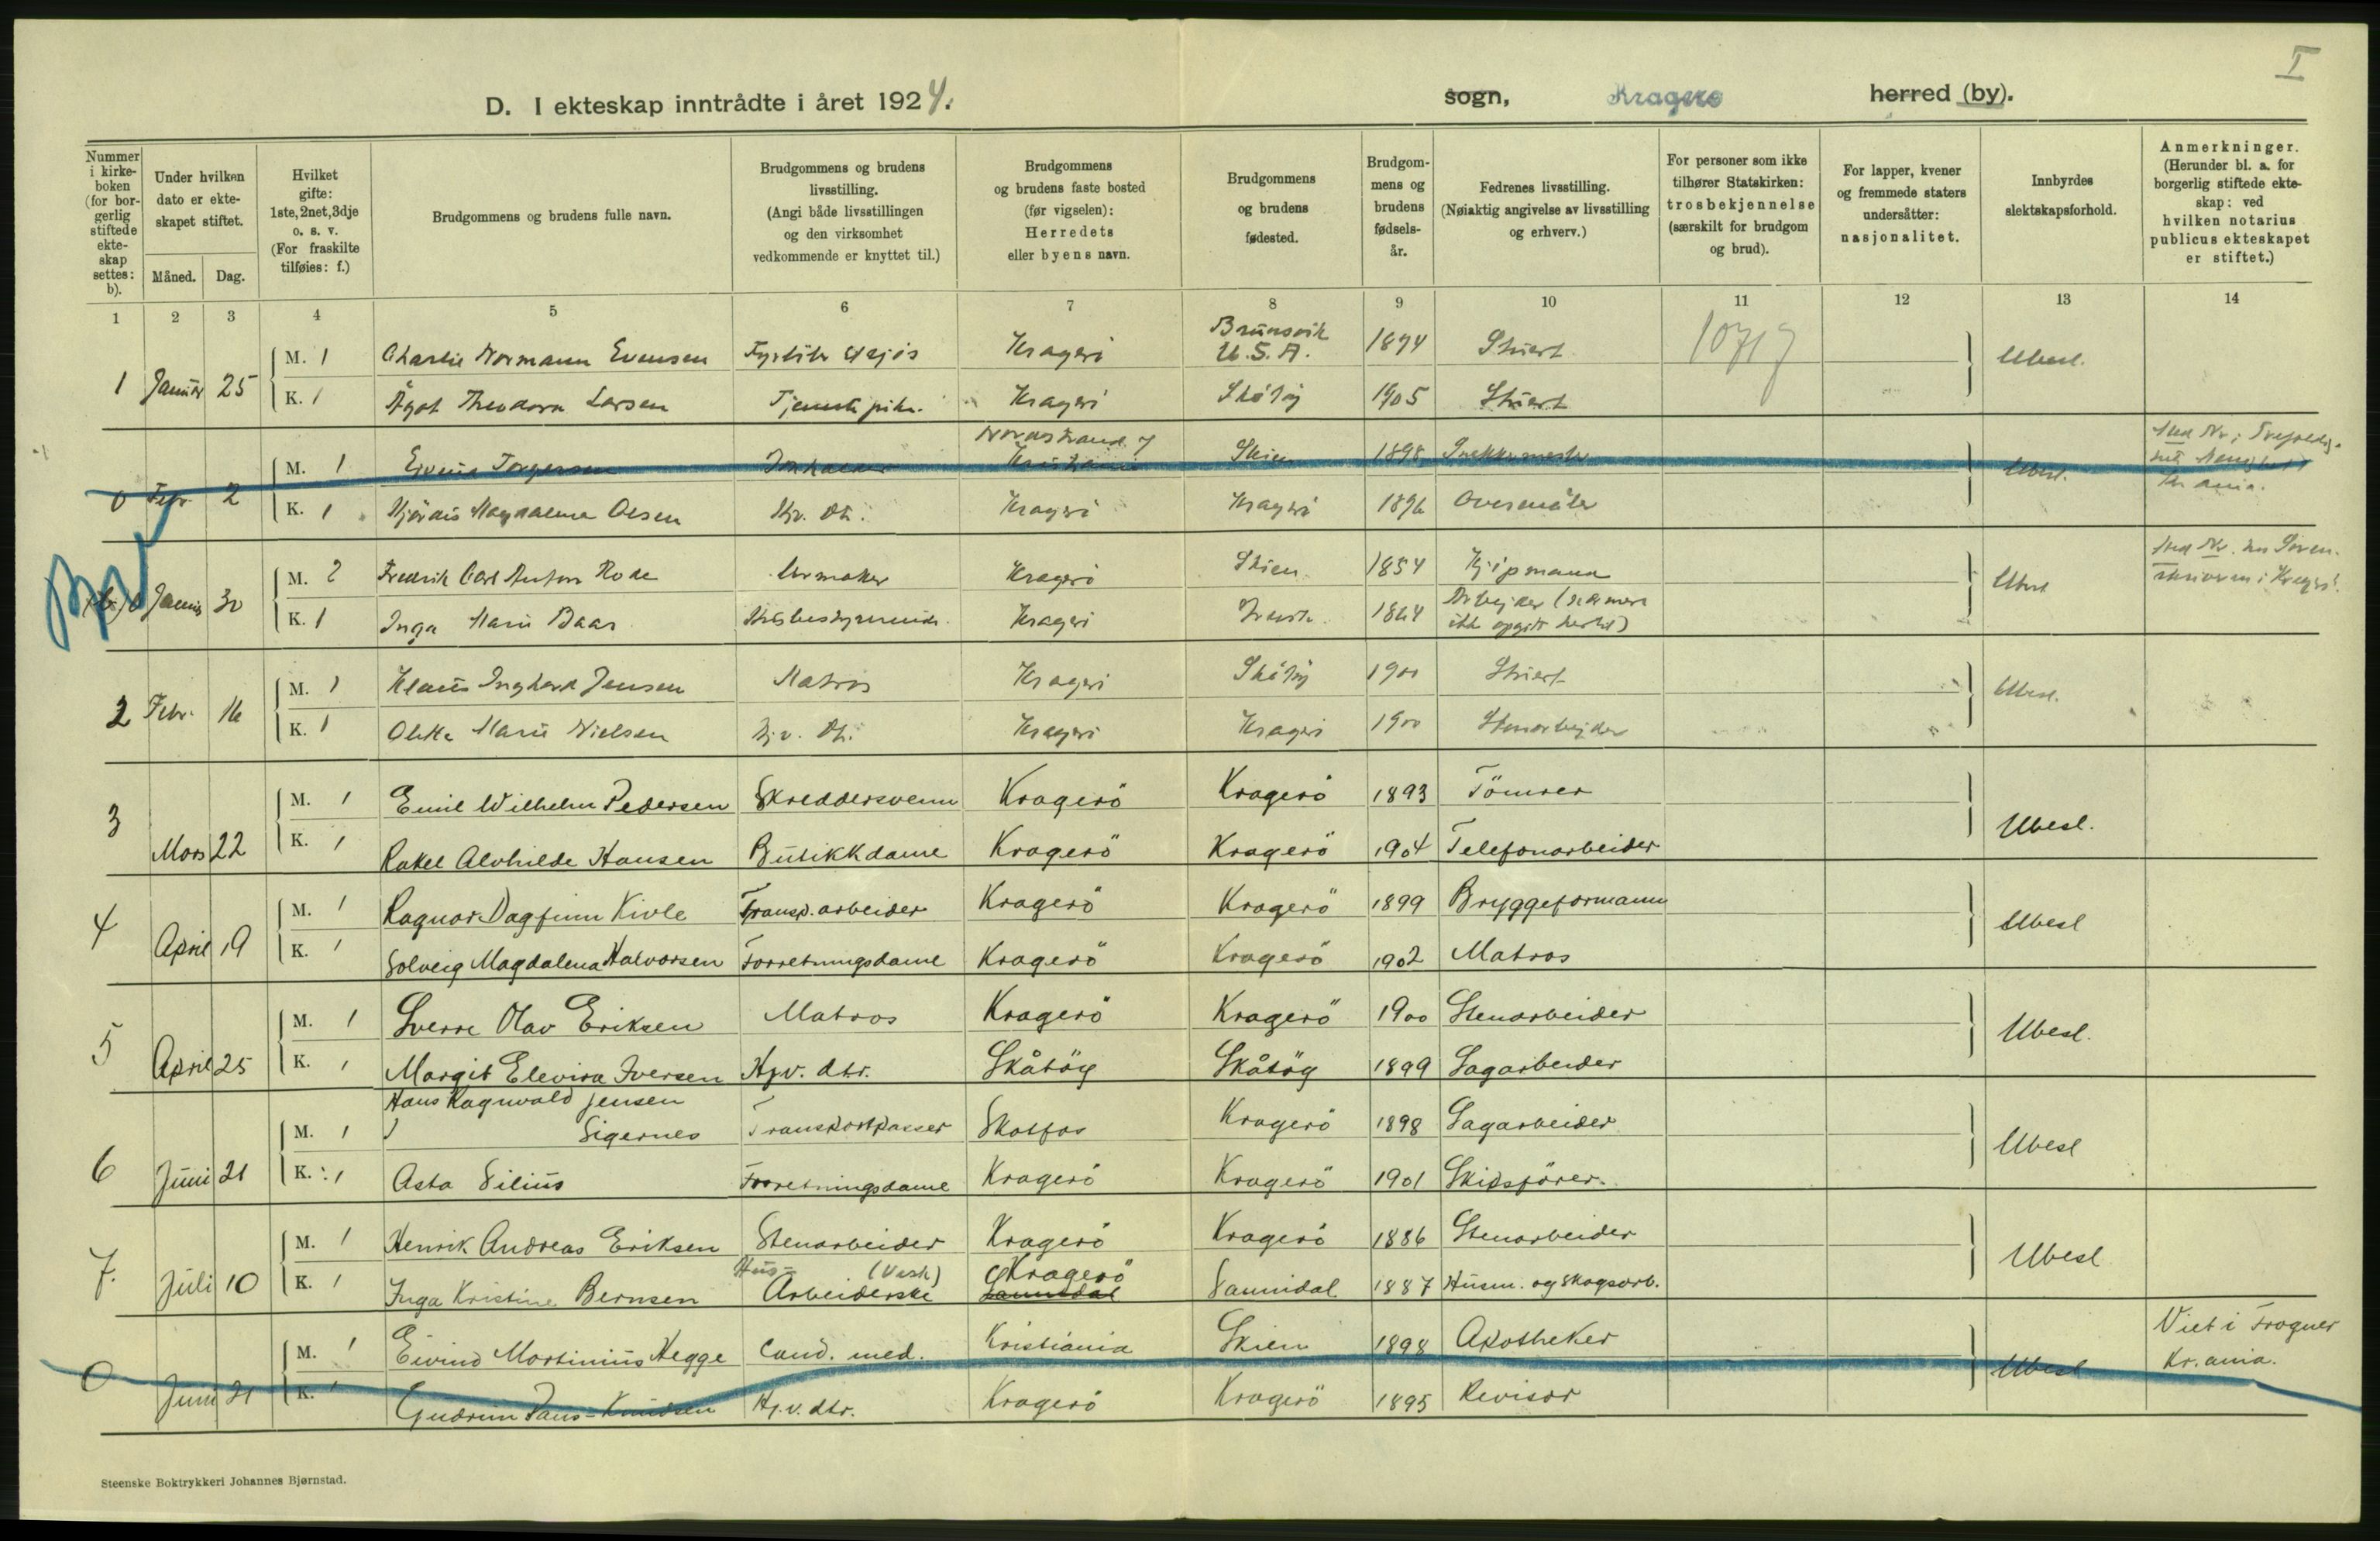 I
D. I ekteskap inntrådte i året 1924.
sogn, Kragerø herred (by).
Nummer i kirkeboken (for borgerlig stiftede ekteskap settes: b).
Under hvilken dato er ekteskapet stiftet.
Måned. Dag.
Hvilket gifte: 1ste, 2net, 3dje o. s. v. (For fraskilte tilføies: f.)
Brudgommens og brudens fulle navn.
Brudgommens og brudens livsstilling. (Angi både livsstillingen og den virksomhet vedkommende er knyttet til.)
Brudgommens og brudens faste bosted (før vigselen): Herredets eller byens navn.
Brudgommens og brudens fødested.
Brudgommens og brudens fødselsår.
Fedrenes livsstilling. (Nøiaktig angivelse av livsstilling og erhverv.)
For personer som ikke tilhører Statskirken: trosbekjennelse (særskilt for brudgom og brud).
For lapper, kvener og fremmede staters undersåtter: nasjonalitet.
Innbyrdes slektskapsforhold.
Anmerkninger. (Herunder bl. a. for borgerlig stiftede ekteskap: ved hvilken notarius publicus ekteskapet er stiftet.)
1 2 3 4 5 6 7 8 9 10 11 12 13 14
M. 1 Charlie Normann Evensen Kragerö U.S.A. 1894 Stuert
1 Januar 25 Ubesl.
K. 1 Ågot Theodora Larsen Tjenestepike Kragerö Skåtöy 1905 Stuert
M. 1 Torgersen Kristiania Skien 1898
0 Febr. 2 Ubesl.
K. 1 Hjördis Magdalena Olsen Hjv. Dt. Kragerö Kragerö 1896
M. 2 Fredrik Carl Anton Rode Urmaker Kragerö Skien 1854 Kjöpmann
Januar 30 Ubesl
K. 1 Inga Marie Baar Husbestyrerinde Kragerö 1864 Arbejder (nærmere
ikke opgitt hertil)
M. 1 Klaus Inghard Jensen Matros Kragerö Skåtöy 1900 Stuert
2 Febr. 16 Ubesl.
K. 1 Marie Nielsen Hjv. Dt. Kragerö Kragerö 1900 Stenarbejder
M. 1 Emil Wilhelm Pedersen Skreddersvenn Kragerö Kragerö 1893 Tömrer
3 Mars 22 Ubesl.
K. 1 Rakel Alvhilde Hansen Butikkdame Kragerö Kragerö 1904 Telefonarbeider
M. 1 Ragnar Dagfinn Kivle Transp. arbeider Kragerö Kragerö 1899 Bryggeformann
4 April 19 Ubesl
K. 1 Solveig Magdalena Halvorsen Forretningsdame Kragerö Kragerö 1902 Matros
M. 1 Sverre Olav Eriksen Matros Kragerö Kragerö 1900 Stenarbeider
5 April 25 Ubesl.
K. 1 Margit Elevira Iversen Hjv. dtr. Skåtöy Skåtöy 1899 Sagarbeider
Hans Ragnvald Jensen
M. 1 Sigernes Transportpasser Skotfos Kragerö 1898 Sagarbeider
6 Juni 21 Ubesl
K. 1 Asta Silius Forretningsdame Kragerö Kragerö 1901 Skipsförer.
M. 1 Henrik Andreas Eriksen Stenarbeider Kragerö Kragerö 1886 Stenarbeider
7. Juli 10 Ubesl
Hus- (Vask) Kragerö
K. 1 Inga Kristine Bernsen Arbeiderske Sannidal Sannidal 1887 Husm. og skogsarb.
M. 1 Eivind Martinius Hegge Cand. med. Kristiania Skien 1898 Apotheker Viet i Frogner
0 Juni 21 Ubesl Kr.ania.
K. 1 Gudrun Paus-Knudsen Hj.v. dtr. Kragerö Kragerö 1895 Revisor
Steenske Boktrykkeri Johannes Bjørnstad.